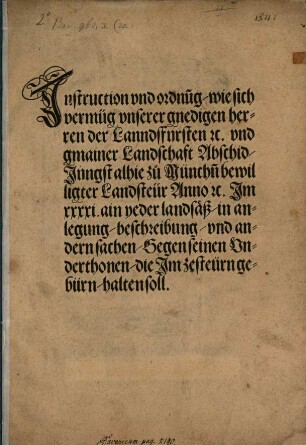 1541.
Instruction vnd ordnūg/wie sich
vermüg vnserer gnedigen her⸗
ren der Lanndsfürsten ꝛc. vnd
gmainer Landschafft Abschid/
Jungst alhie zů Münchñ bewil
ligter Landsteür Anno ꝛc. Im
xxxxi. ain yeder landsäß/in an⸗
legung/beschreibung/vnd an⸗
dern sachen/Gegen seinen Vn⸗
derthonen/die Im zesteürn ge⸗
bürn/halten soll.